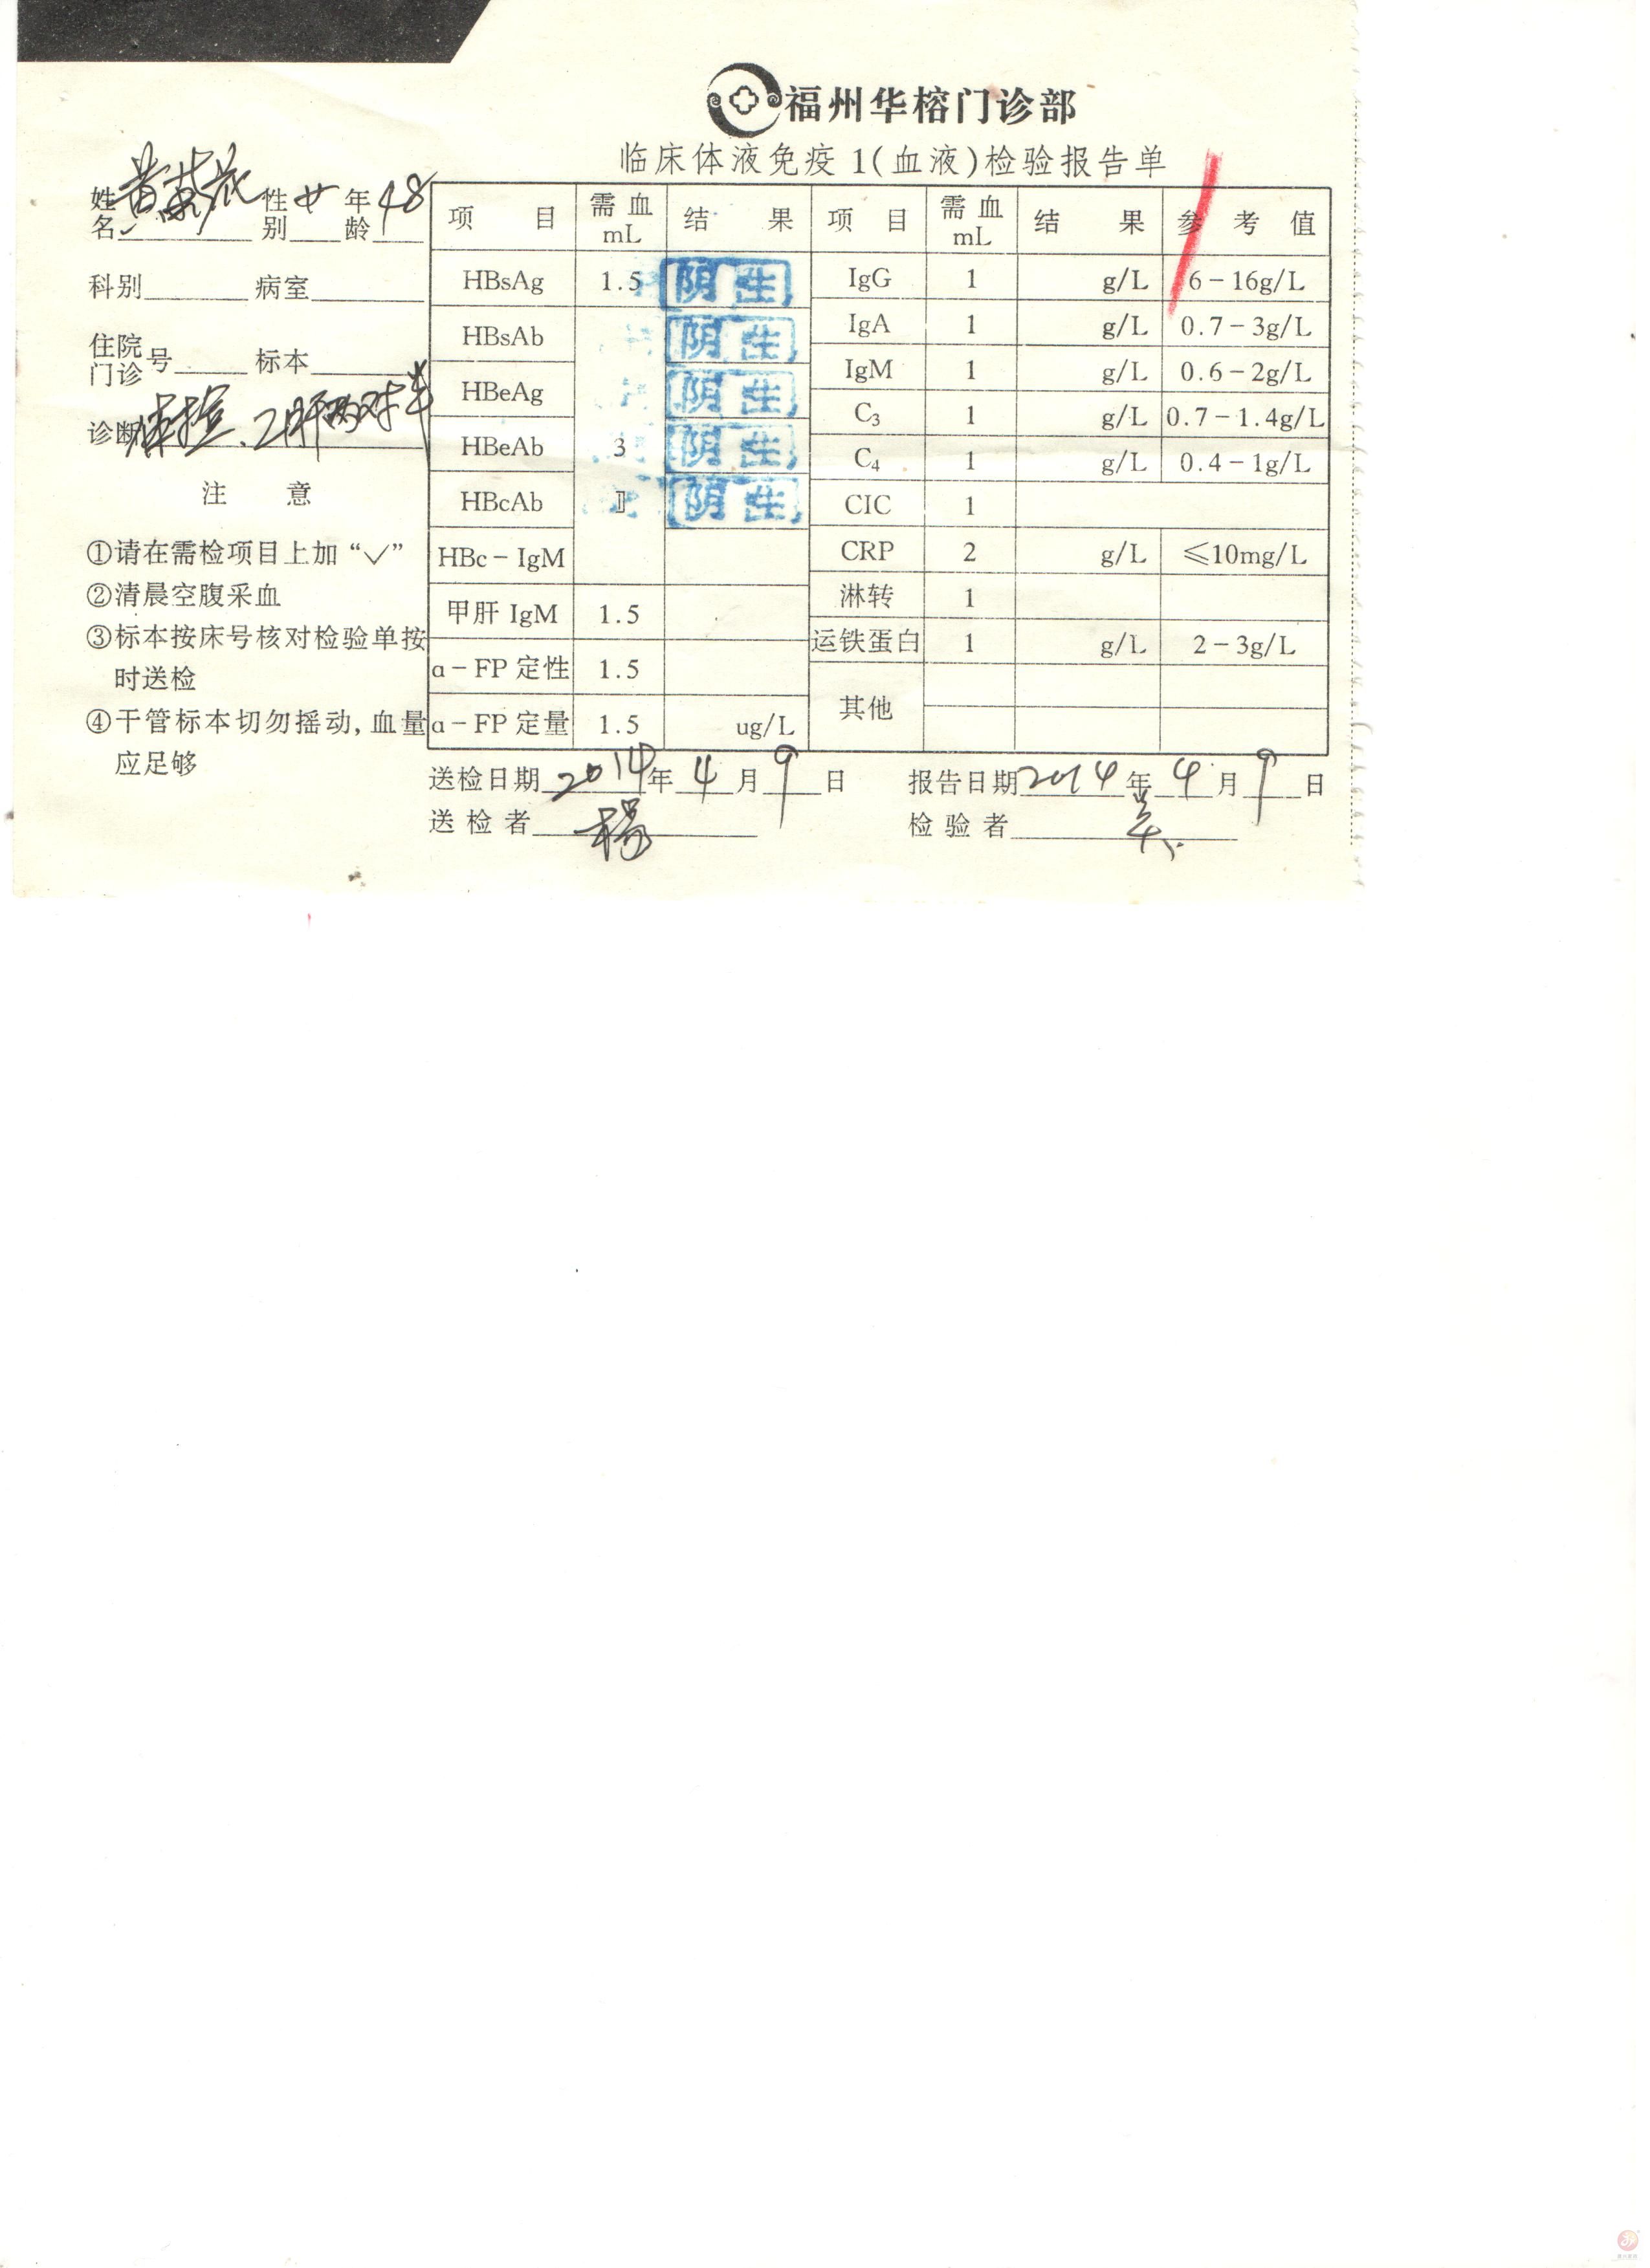 福州华榕门诊部
临床体液免疫1(血液)检验报告单
姓名 黄 性别 女 年龄 48
科别 病室
住院门诊号 标本
诊断 体检、乙肝两对半
注 意
①请在需检项目上加“✓”
②清晨空腹采血
③标本按床号核对检验单按
时送检
④干管标本切勿摇动,血量
应足够
项 目 需血mL 结 果 项 目 需血mL 结 果 参 考 值
HBsAg 1.5 阴性 IgG 1 g/L 6-16g/L
HBsAb 阴性 IgA 1 g/L 0.7-3g/L
HBeAg 阴性 IgM 1 g/L 0.6-2g/L
C3 1 g/L 0.7-1.4g/L
HBeAb 3 阴性 C4 1 g/L 0.4-1g/L
HBcAb 阴性 CIC 1
HBc-IgM CRP 2 g/L ≤10mg/L
甲肝 IgM 1.5 淋转 1
α-FP 定性 1.5 运铁蛋白 1 g/L 2-3g/L
α-FP 定量 1.5 ug/L 其他
送检日期 2014 年 4 月 9 日 报告日期 2014 年 4 月 9 日
送检者 杨 检验者